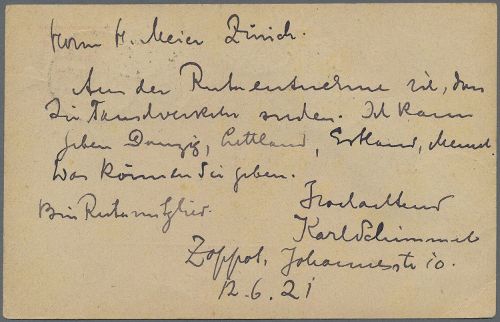 Herrn H. Meier Zürich.
Aus der Revue entnehme ich, dass
Sie Tauschverkehr suchen. Ich kann
geben Danzig, Lettland, Estland, Memel.
Was können Sie geben.
Hochachtend
Bin Revuemitglied.
Karl Schimmel
Zoppot, Johannesstr 10.
12.6.21